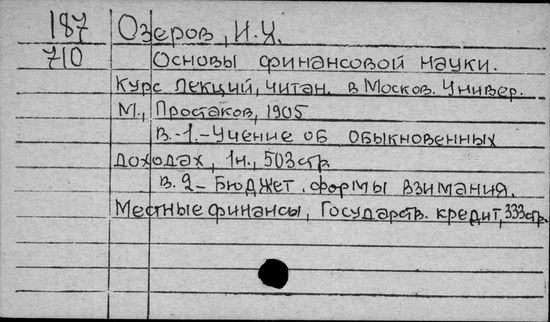 187 Озеров, И.Х.
710 Основы финансовой науки.
Курс лекций, читан. в Москов. Универ.
М., Простаков, 1905
В.-1.-Учение об обыкновенных
доходах, 1н., 503стр.
в. 2- Бюджет, формы взимания.
Местные финансы, Государств. кредит, 333стр.